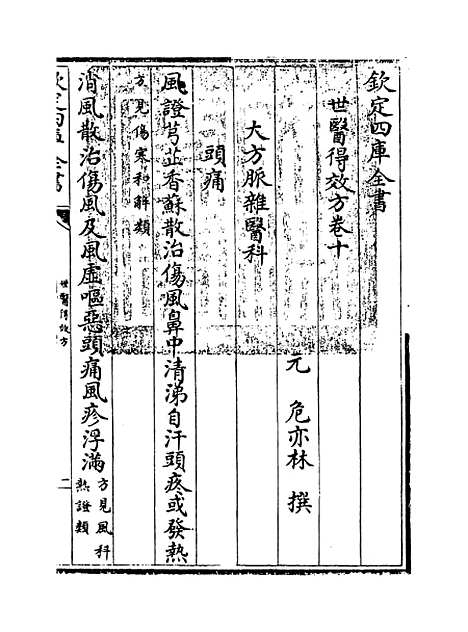 欽定四庫全書
世醫得效方卷十
元 危亦林 撰
大方脈雜醫科
頭痛
風證芎芷香蘇散治傷風鼻中清涕自汗頭疼或發熱
方見傷寒和解類
消風散治傷風及風虛嘔惡頭痛風疹浮滿
方見風科
熱證類
欽定四庫全書
世醫得效方